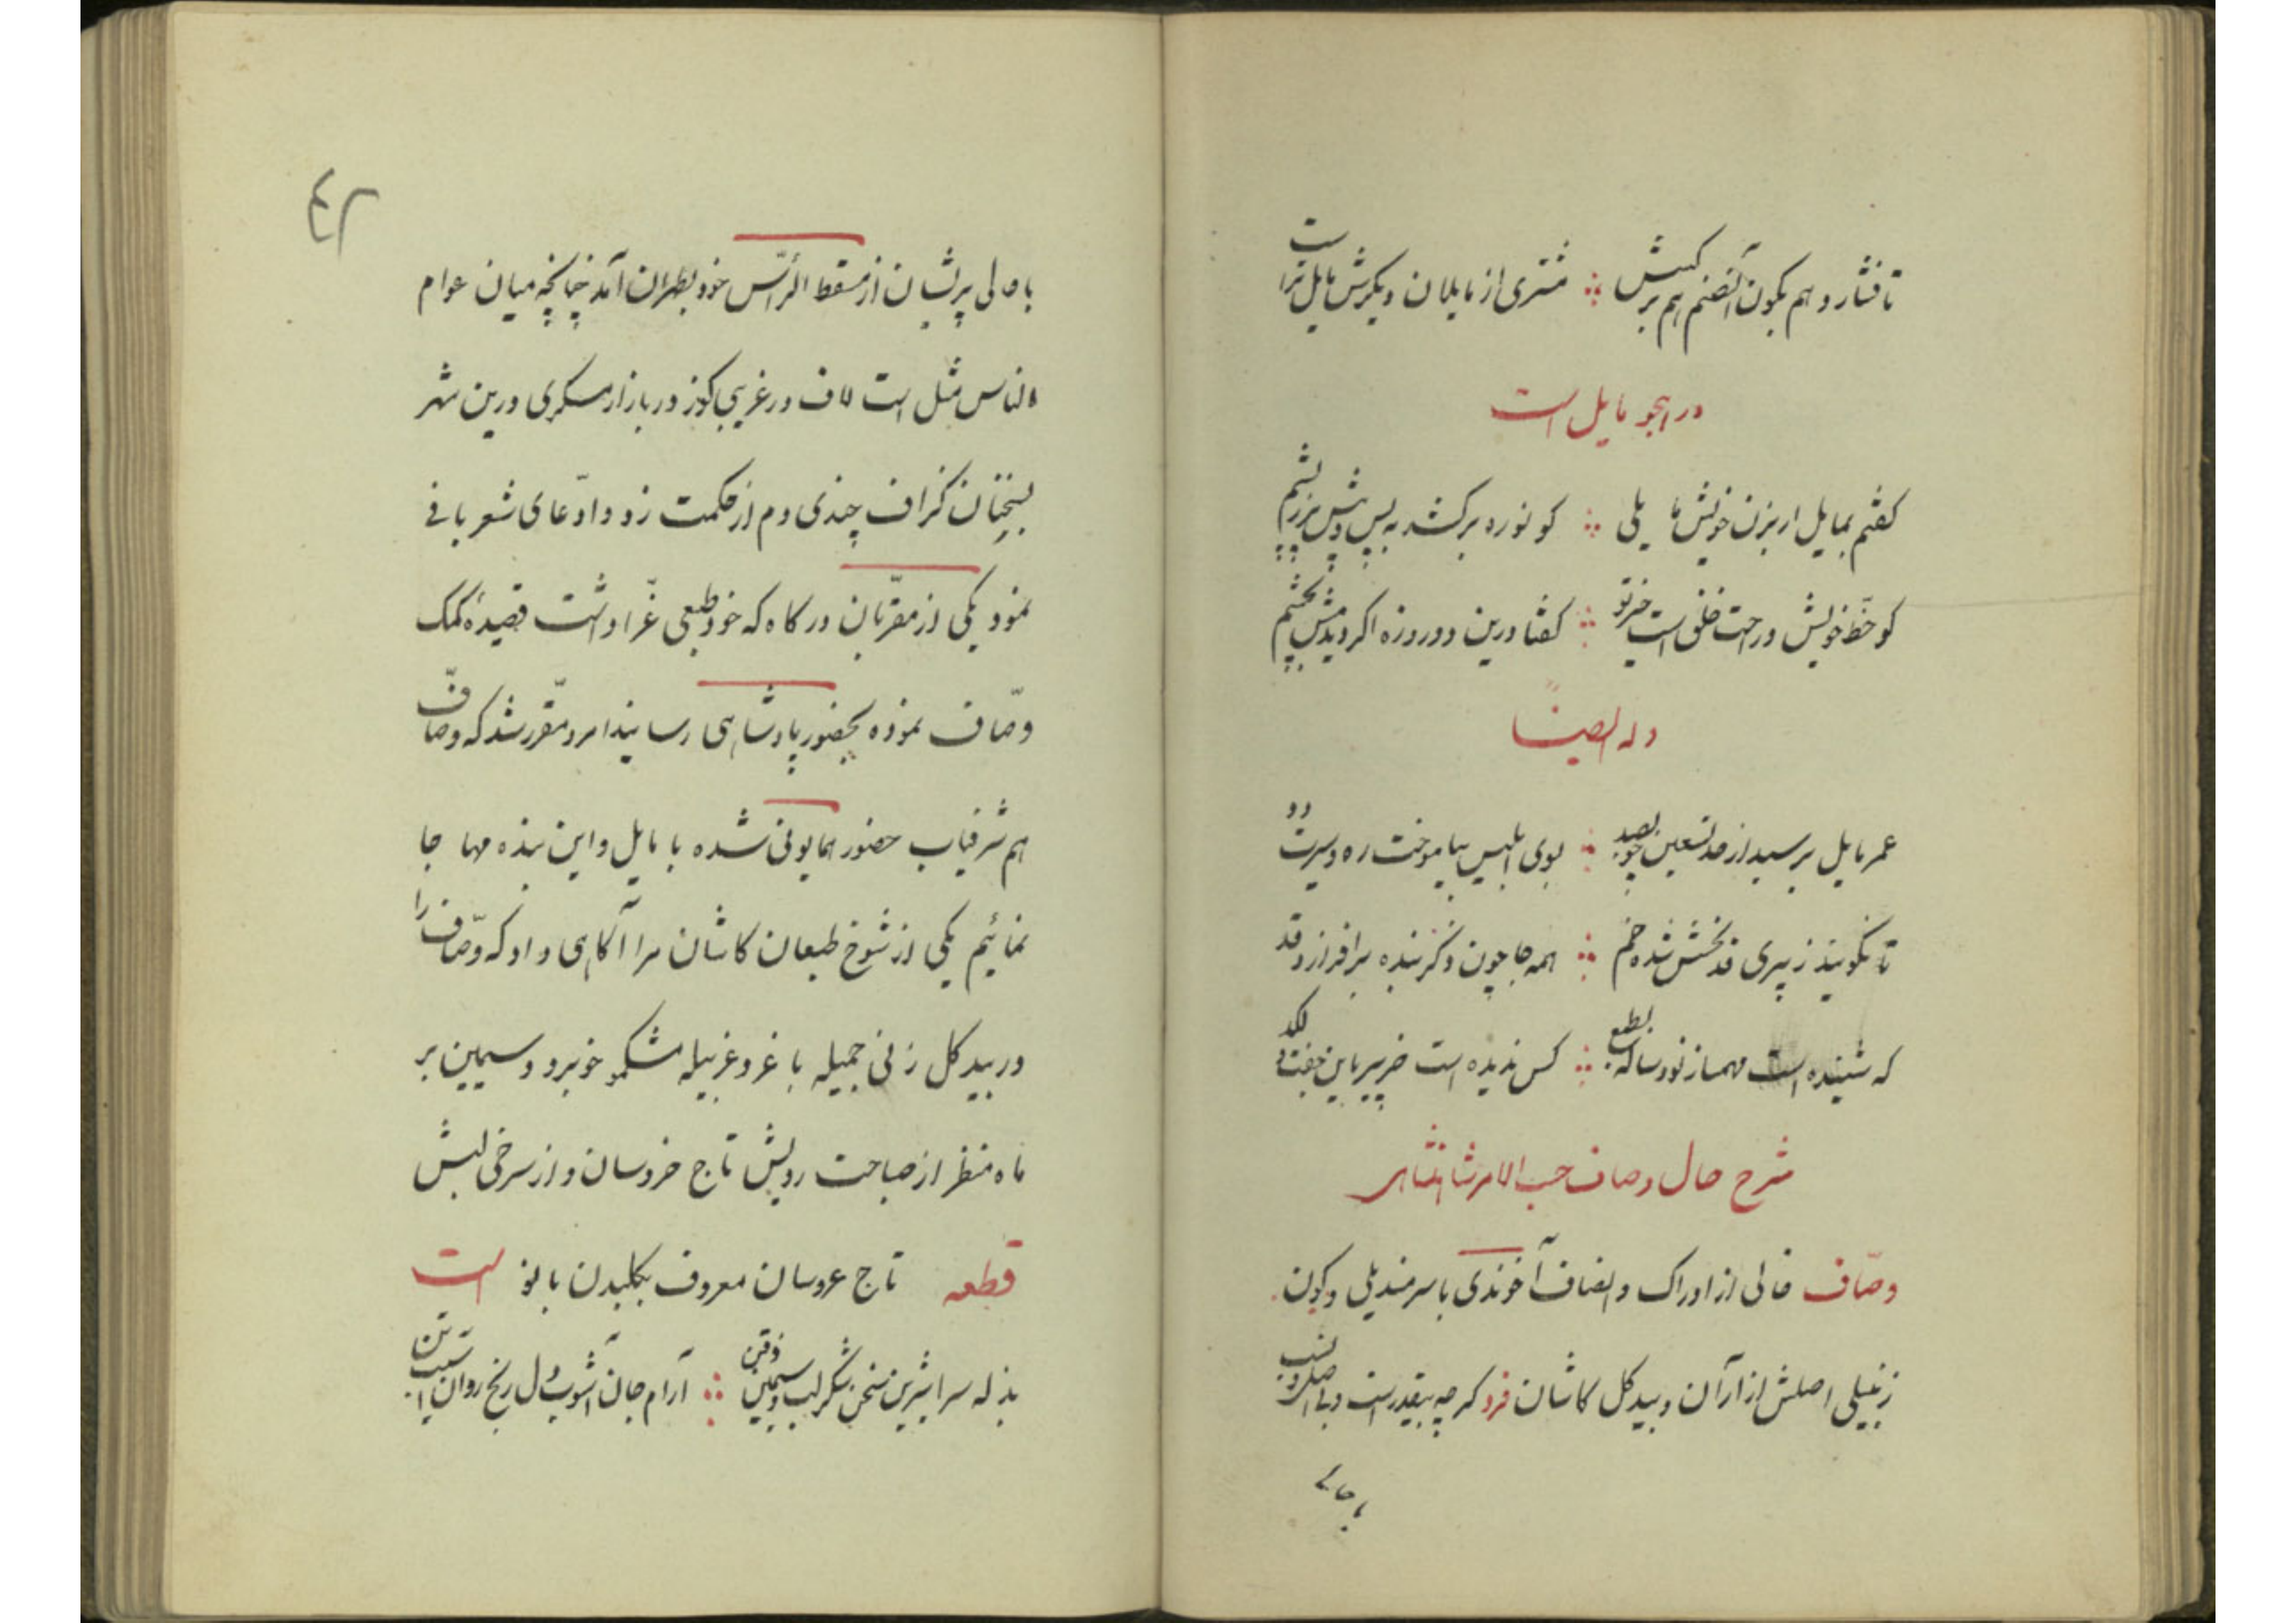 تا فشارد هم بکون آنصنم هم بر کسش ∴ مشتری از مایلان دیگرش مایل‌تر است
در هجو مایل است
گفتم بمایل ار بزن خویش مایلی ∴ کو نوره برکشد به پس و پیش برز پشم
کو خط خویش در حت خلق است خر تو ∴ گفتا درین دو روزه اگر دیدمش بچشم
وله ایضاً
عمر مایل برسید از صد تسعین چو بصد ∴ بوی ابلیس بیاموخت ره و سیرت دد
تا نگویند ز پیری قد نحسش شده خم ∴ همه جا چون ذکر بنده برافرازد قد
که شنیده است مهماز نود ساله بطبع ∴ کس ندیده است خر پیر باین جفت لگد
شرح حال وصاف حسب الامر شاهنشاهی
وصّاف خالی از ادراک و انصاف آخوندی با سر مندیلی و کون
زنبیلی اصلش از آران و بیدگل کاشان فرد گرچه بیقدر است و بی اصل و نسب
با حالی
٤٢
با حالی پریشان از مسقط الرأس خود بطهران آمد چنانچه میان عوام
الناس مثل است لاف در غریبی گوز در بازار مسگری درین شهر
بسخنان گزاف چندی دم از حکمت زد و ادّعای شعر بافی
نمود یکی از مقرّبان درگاه که خود طبعی غرّا داشت قصیدهٔ کمک
وصّاف نموده بحضور پادشاهی رسانید امر و مقرر شد که وصّاف
هم شرفیاب حضور همایونی شده با مایل و این بنده مهاجا
نمائیم یکی از شوخ طبعان کاشان مرا آگاهی داد که وصّاف را
در بیدگل زنی جمیله با غر و غربیله مشکمو خوبرو و سیمین بر
ماه منظر از صباحت رویش تاج خروسان و از سرخی لبش
قطعه تاج عروسان معروف بکلیدن بانو است
بذله سرا شیرین سخن شکر لب و سیمین ذقن ∴ آرام جان آشوب دل رنج روان